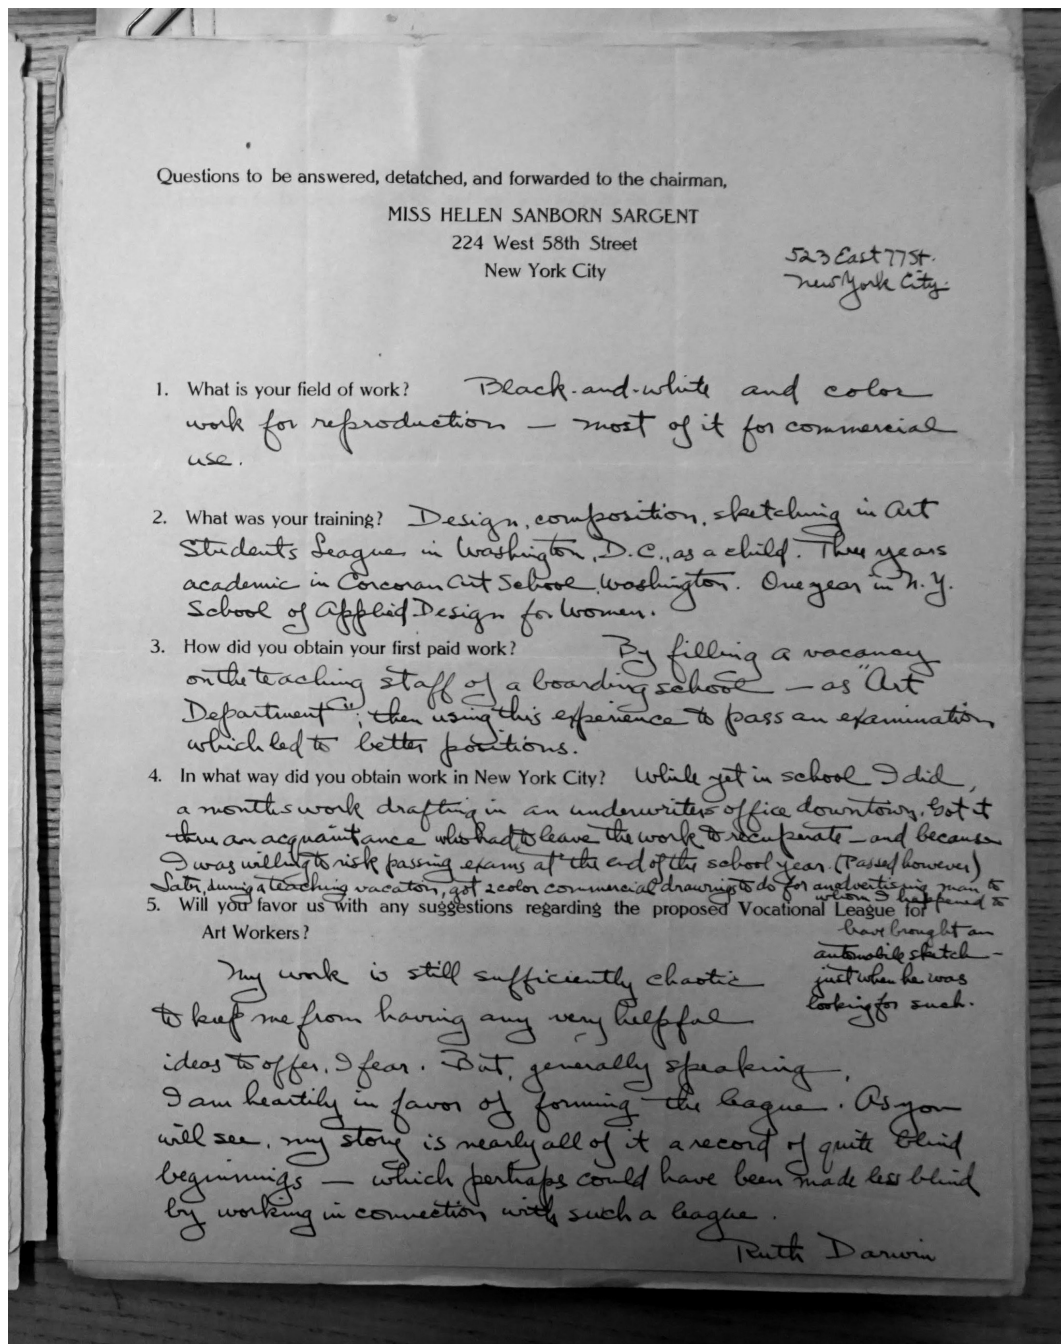 Questions to be answered, detatched, and forwarded to the chairman,
MISS HELEN SANBORN SARGENT
224 West 58th Street
New York City
523 East 77 St.
New York City.
1. What is your field of work? Black-and-white and color
work for reproduction — most of it for commercial
use.
2. What was your training? Design, composition, sketching in Art
Students League in Washington, D.C., as a child. Three years
academic in Corcoran Art School, Washington. One year in N.Y.
School of Applied Design for Women.
3. How did you obtain your first paid work? By filling a vacancy
on the teaching staff of a boarding school — as "Art
Department"; then using this experience to pass an examination
which led to better positions.
4. In what way did you obtain work in New York City? While yet in school I did,
a months work drafting in an underwriters office downtown. Got it
thru an acquaintance who had to leave the work to recuperate — and because
I was willing to risk passing exams at the end of the school year. (Passed however)
Later, during a teaching vacation, got 2 color commercial drawings to do for an advertising man to
whom I happened to
have brought an
automobile sketch —
just when he was
looking for such.
5. Will you favor us with any suggestions regarding the proposed Vocational League for
Art Workers?
My work is still sufficiently chaotic
to keep me from having any very helpful
ideas to offer, I fear. But, generally speaking,
I am heartily in favor of forming the league. As you
will see, my story is nearly all of it a record of quite blind
beginnings — which perhaps could have been made less blind
by working in connection with such a league.
Ruth Darwin